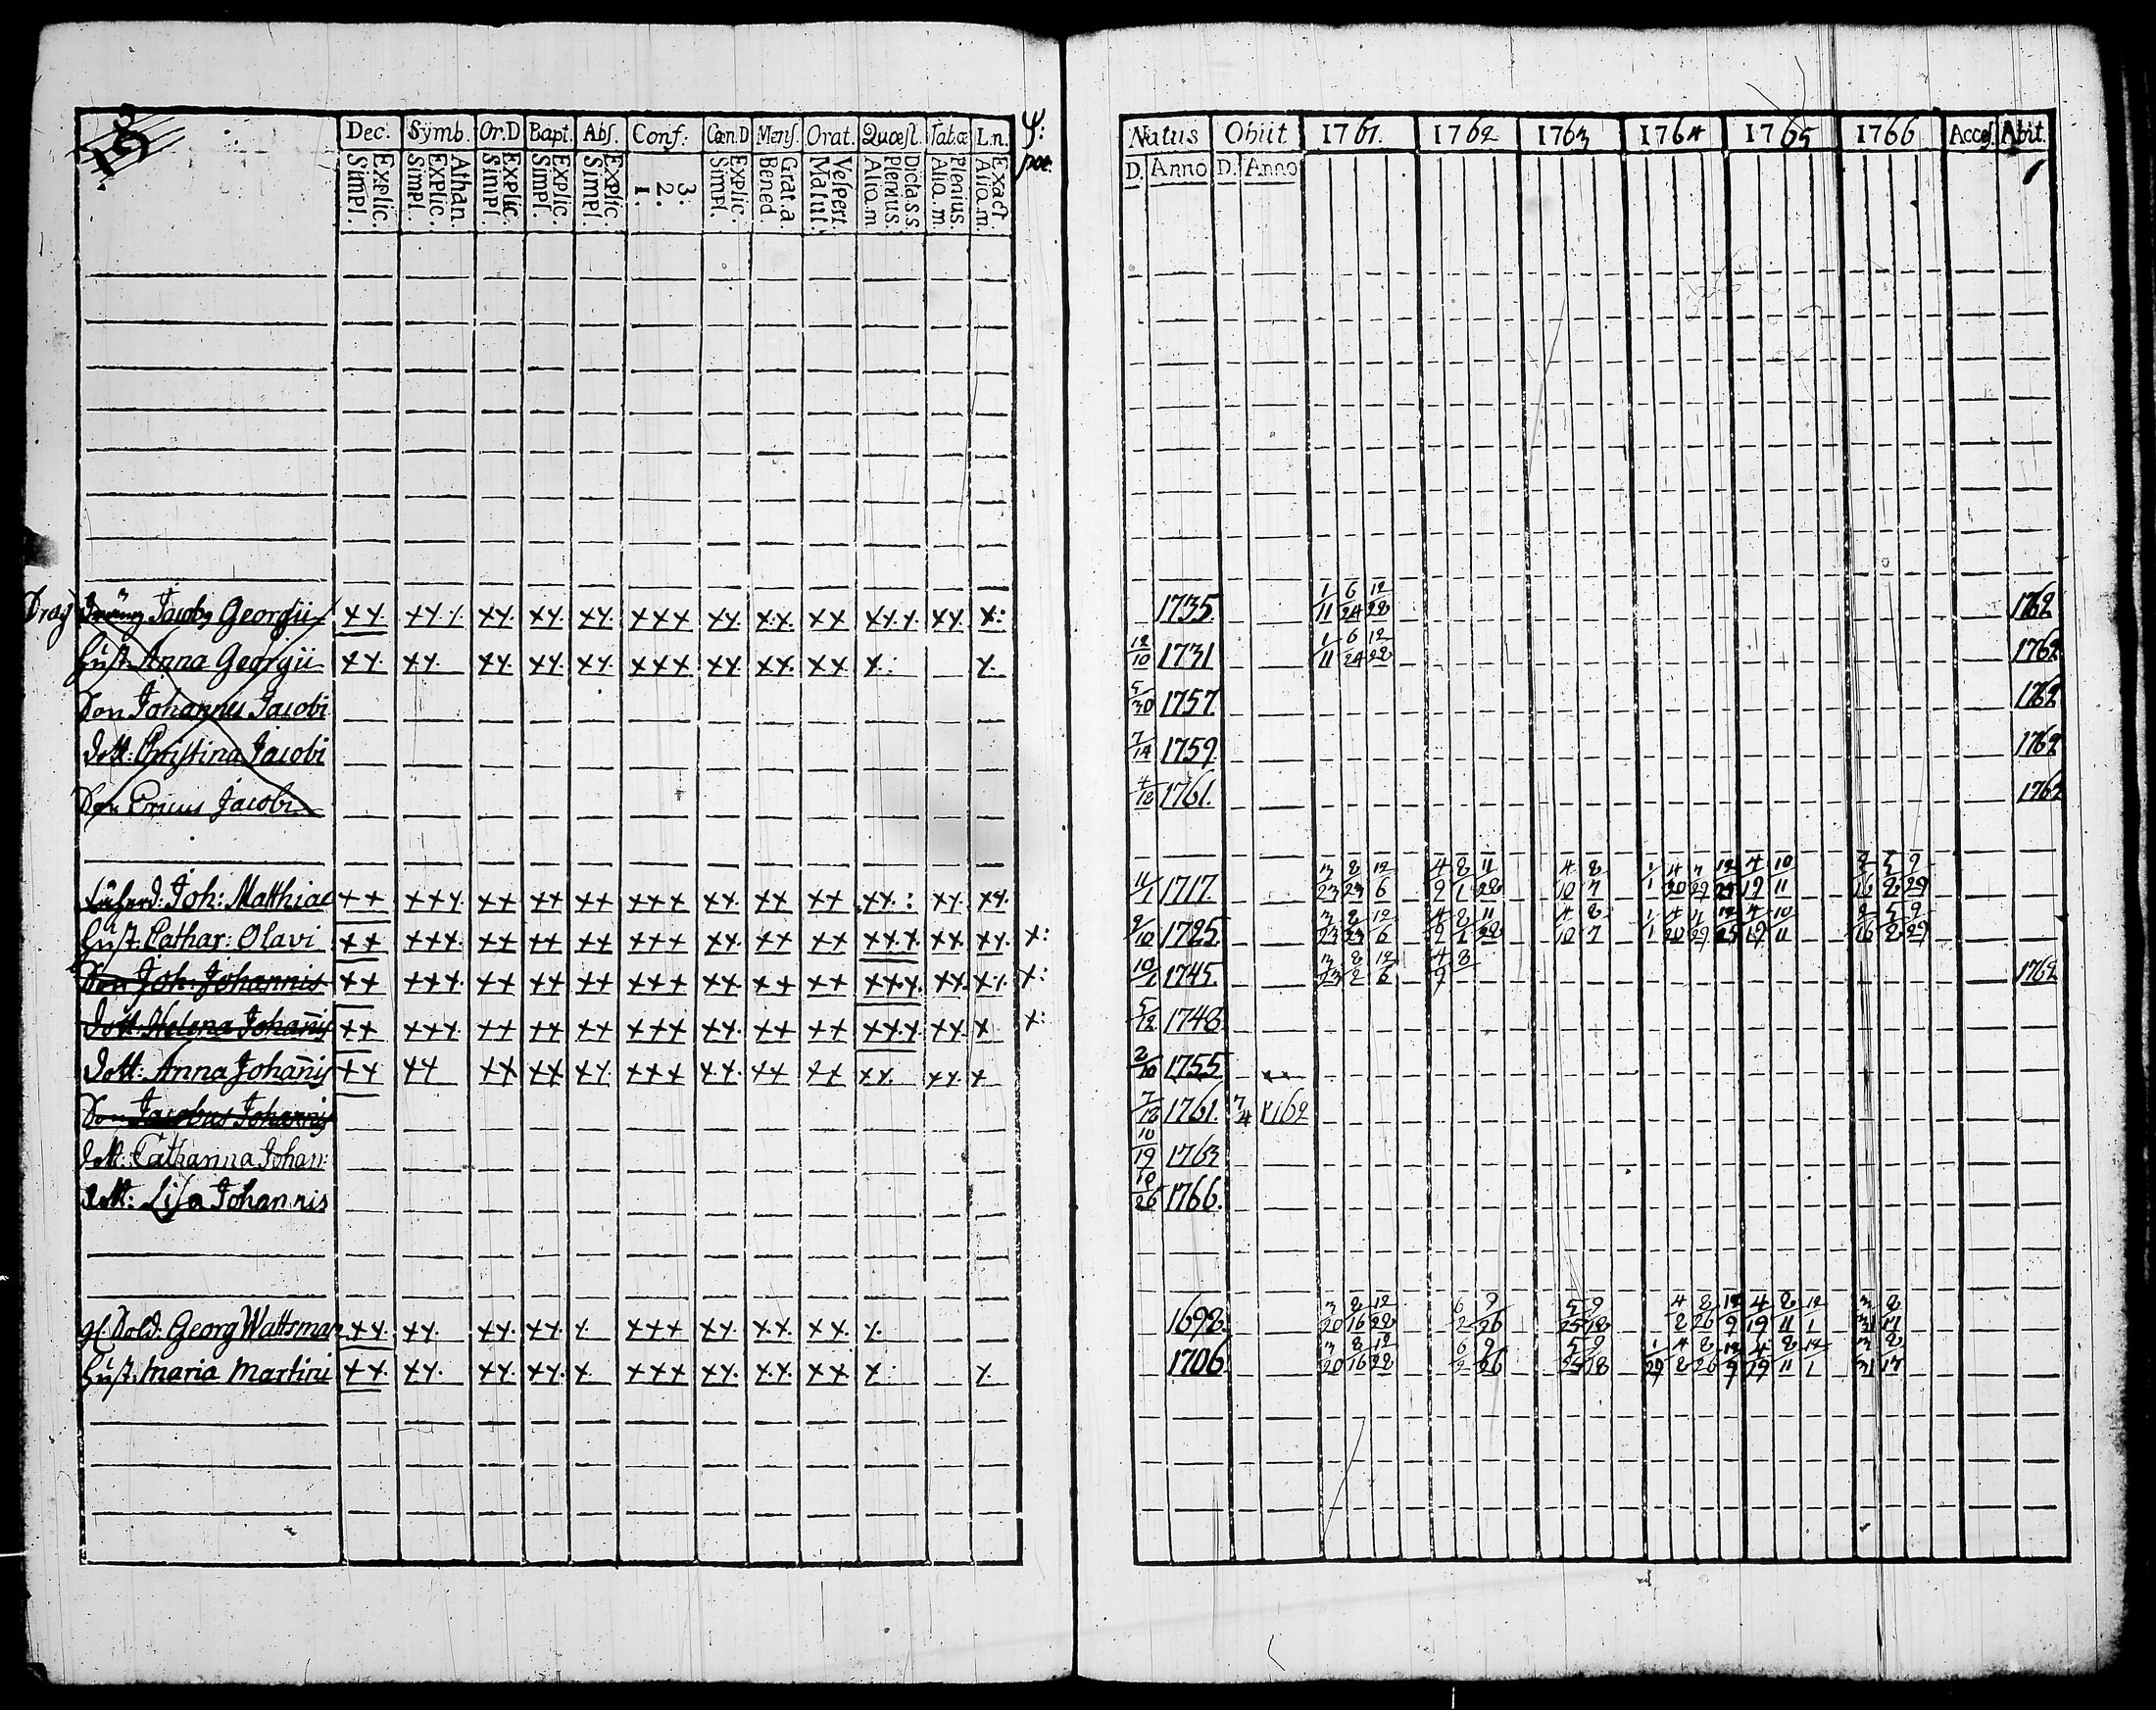 Dec. Sÿmb. Or.D Bapt. Abſ. Conf: Cœn.D Menſ. Orat. Quœſt. Tabœ L.n.
Explic. Simpl. Athan. Explic. Simpl. Explic. Simpl. Explic. Simpl. Explic. Simpl. 3. 2. 1. Explic. Simpl. Grat.a Bened Veſpert. Matut. Dicta.s.s. Plenius. Alio.m Plenius. Alio.m Exact Alio.m
Drag Dräng Jacobg Georgii x x. x x. x x x. x x. x x. x x x x x. x x. x x x x. x. x x. x:
Huſt. Anna Georgii x x. x x. x x. x x. x x. x x x x x. x x. x x x: x.
Son Johannes Jacobi
dott: Chriſtina Jacobi
Son Ericus Jacobi
Joh: Matthiae x x x x x. x x x x x x x x x x x. x x x x x x. : x x. x x.
Huſt. Cathar: Olavi x x x x x. x x x x x x x x x x x. x x x x x x. x. x x. x x. x:
Son Joh: Johannis x x x x x. x x x x x x x x x x x. x x x x x x x. x x. x x. x:
Dott. Helena Johan̄is x x x x x. x x x x x x x x x x x. x x x x x x x. x x. x x:
dott: Anna Johan̄is x x x x x x x x x x. x x x x x. x x x x x x. x x. x
Son Jacobus Johannis
dott: Catharina Johan:
dott: Liſa Johannis
Sold. Georg Wattsman x x. x x. x x. x x. x x x x x x. x x. x x. x.
Huſt. Maria Martini x x. x x. x x. x x. x. x x x x x. x x. x x x. x.
Natus Obiit 1761. 1762 1763 1764 1765 1766 Acceſ. Abit.
D. Anno D. Anno
1735. 1/11 6/24 12/28 1762
12/10 1731 1/11 6/24 12/28 1762
5/30 1757. 1762
7/14 1759. 1762
4/12 1761. 1762
11/1 1717. 3/23 8/23 12/6 4/9 8/1 11/28 4/10 8/7 1/1 4/20 7/29 12/25 4/19 10/11 2/16 5/8 9/29
9/10 1725. 3/23 8/23 12/6 4/9 8/1 11/28 4/10 8/7 1/1 4/20 7/29 12/25 4/19 10/11 2/16 5/8 9/29
1745. 3/23 8/2 12/6 4/9 8 1762
5/12 1748
2/10 1755
7/12 1761. 7/4 1762
10/19 1763
10/26 1766.
1698. 3/20 8/16 12/28 6/2 9/26 5/25 9/18 4/8 8/26 12/9 4/19 8/11 12/1 3/31 8/17
1706. 3/20 8/16 12/28 6/2 9/26 5/25 9/18 1/29 4/8 8/26 12/9 4/19 8/11 12/1 3/31 8/17